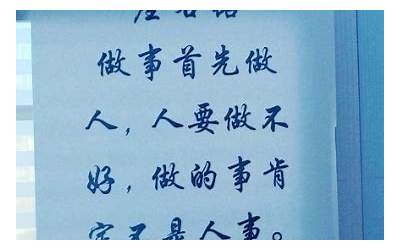 座右铭
做事首先做
人，人要做不
好，做的事肯
定不是人事。